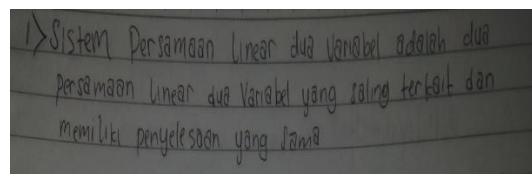 1> Sistem Persamaan linear dua Variabel adalah dua
persamaan linear dua Variabel yang saling terkait dan
memiliki penyelesaan yang sama